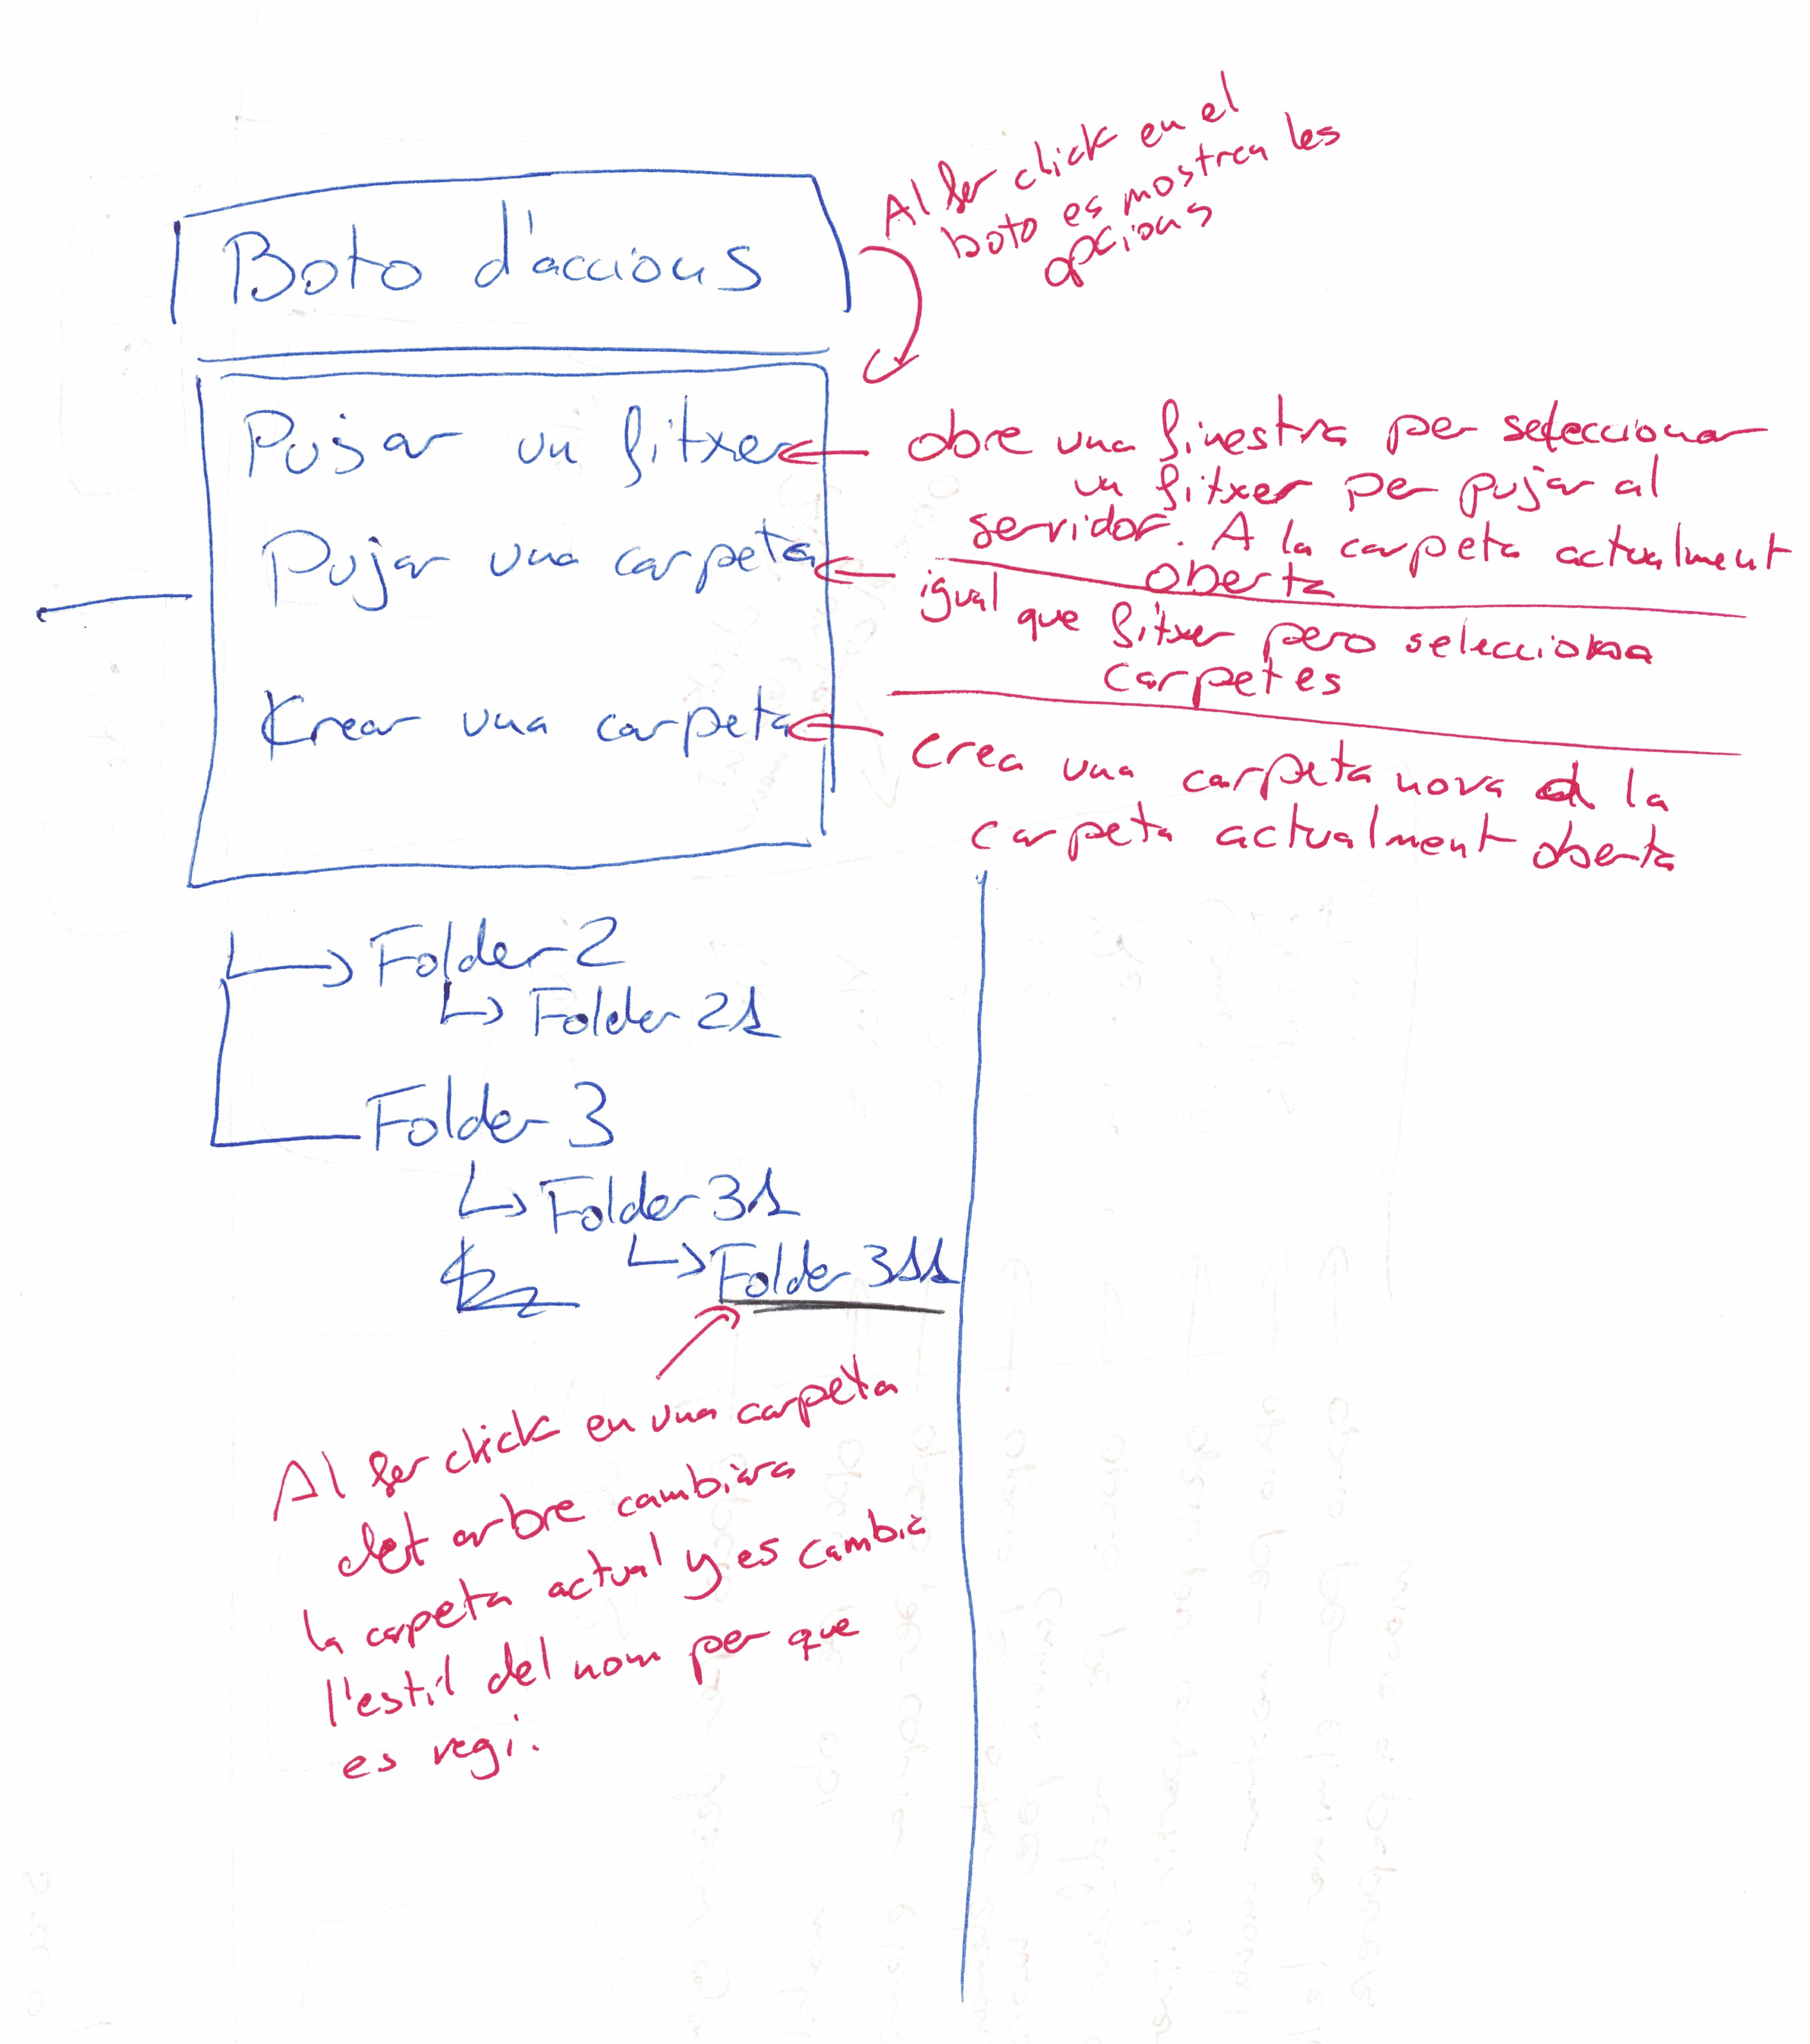 Al fer click en el
boto es mostren les
opcions
Boto d'accions
Pujar un fitxer
obre una finestra per seleccionar
un fitxer per pujar al
servidor. A la carpeta actualment
oberta
Pujar una carpeta
igual que fitxer pero selecciona
carpetes
Crear una carpeta
crea una carpeta nova a la
carpeta actualment oberta
Folder 2
Folder 21
Folder 3
Folder 31
Folder 311
Al fer click en una carpeta
del arbre cambiara
la carpeta actual y es cambia
l'estil del nom per que
es vegi.